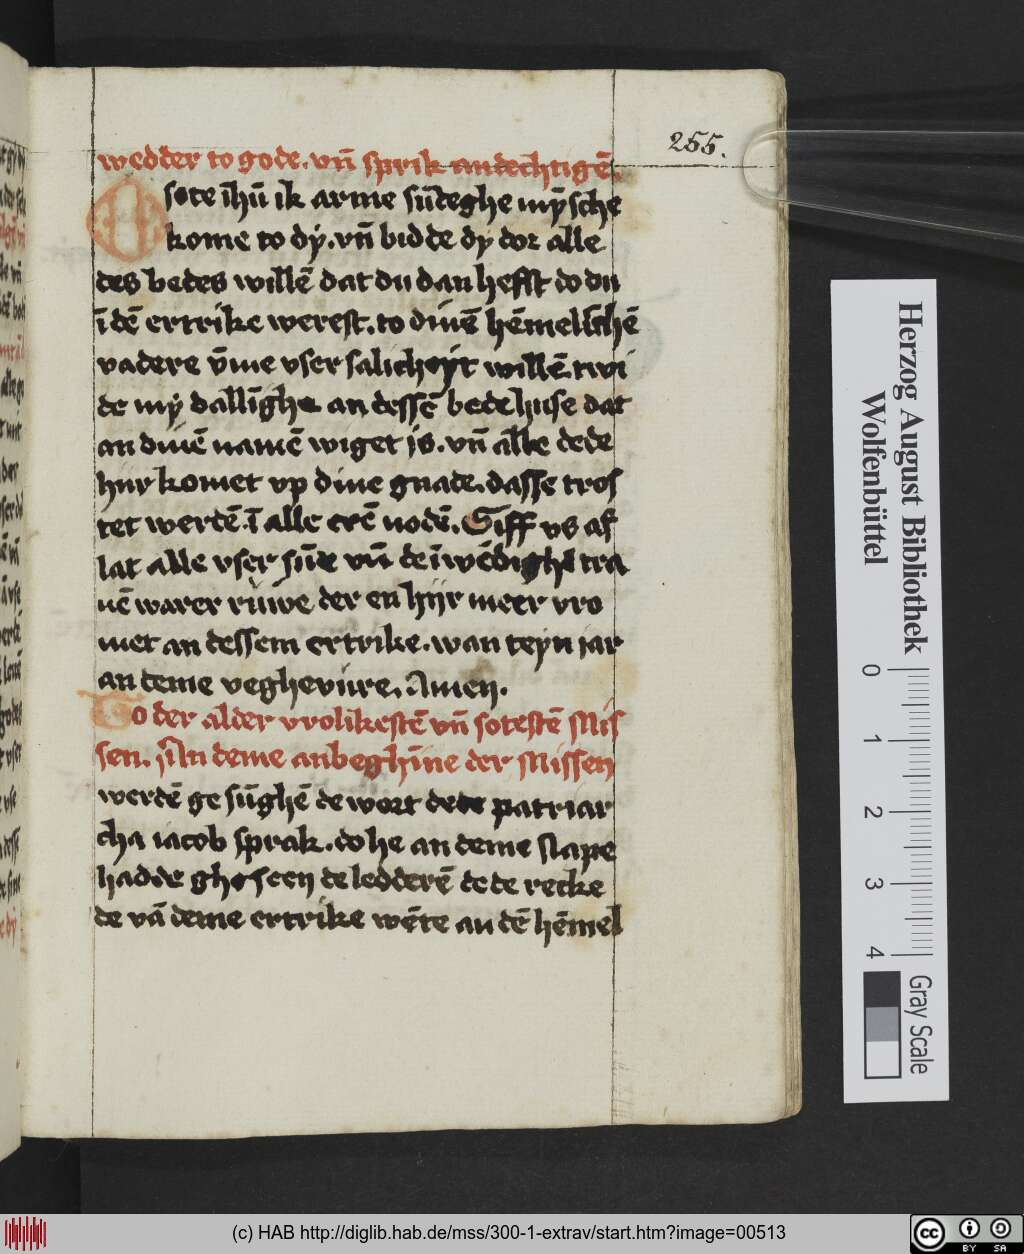 255.
wedder to gode. vn̄ sprik andechtigē.
O sote ih̄u ik arme sūdeghe mȳsche
kome to dy. vn̄ bidde dy dor alle
des bedes willē dat du dan hefft do du
ī dē ertrike werest. to dinē hēmelschē
vadere v̄me vser salicheyt willē. twi
de my dallīghe an dessē bedehuse dat
an dinē namē wiget is. vn̄ alle dede
hiir komet vp dine gnade. dasse tros
tet werdē. ī alle erē nodē. Giff vs af
lat alle vser sūde vn̄ de īwēdighe tra
nē warer ruwe der en hiir meer vro
met an dessem ertrike. wan teyn jar
an deme veghevure. Amen.
To der alder vrolikestē vn̄ sotestē Mis
sen. An deme anbeghīne der Missen
werdē ge sūghē de wort dede patriar
cha iacob sprak. do he an deme slape
hadde gheseen de ledderē de de recke
de vā deme ertrike wēte an dē hēmel
Herzog August Bibliothek
Wolfenbüttel
0 1 2 3 4
Gray Scale
(c) HAB http://diglib.hab.de/mss/300-1-extrav/start.htm?image=00513
cc BY SA